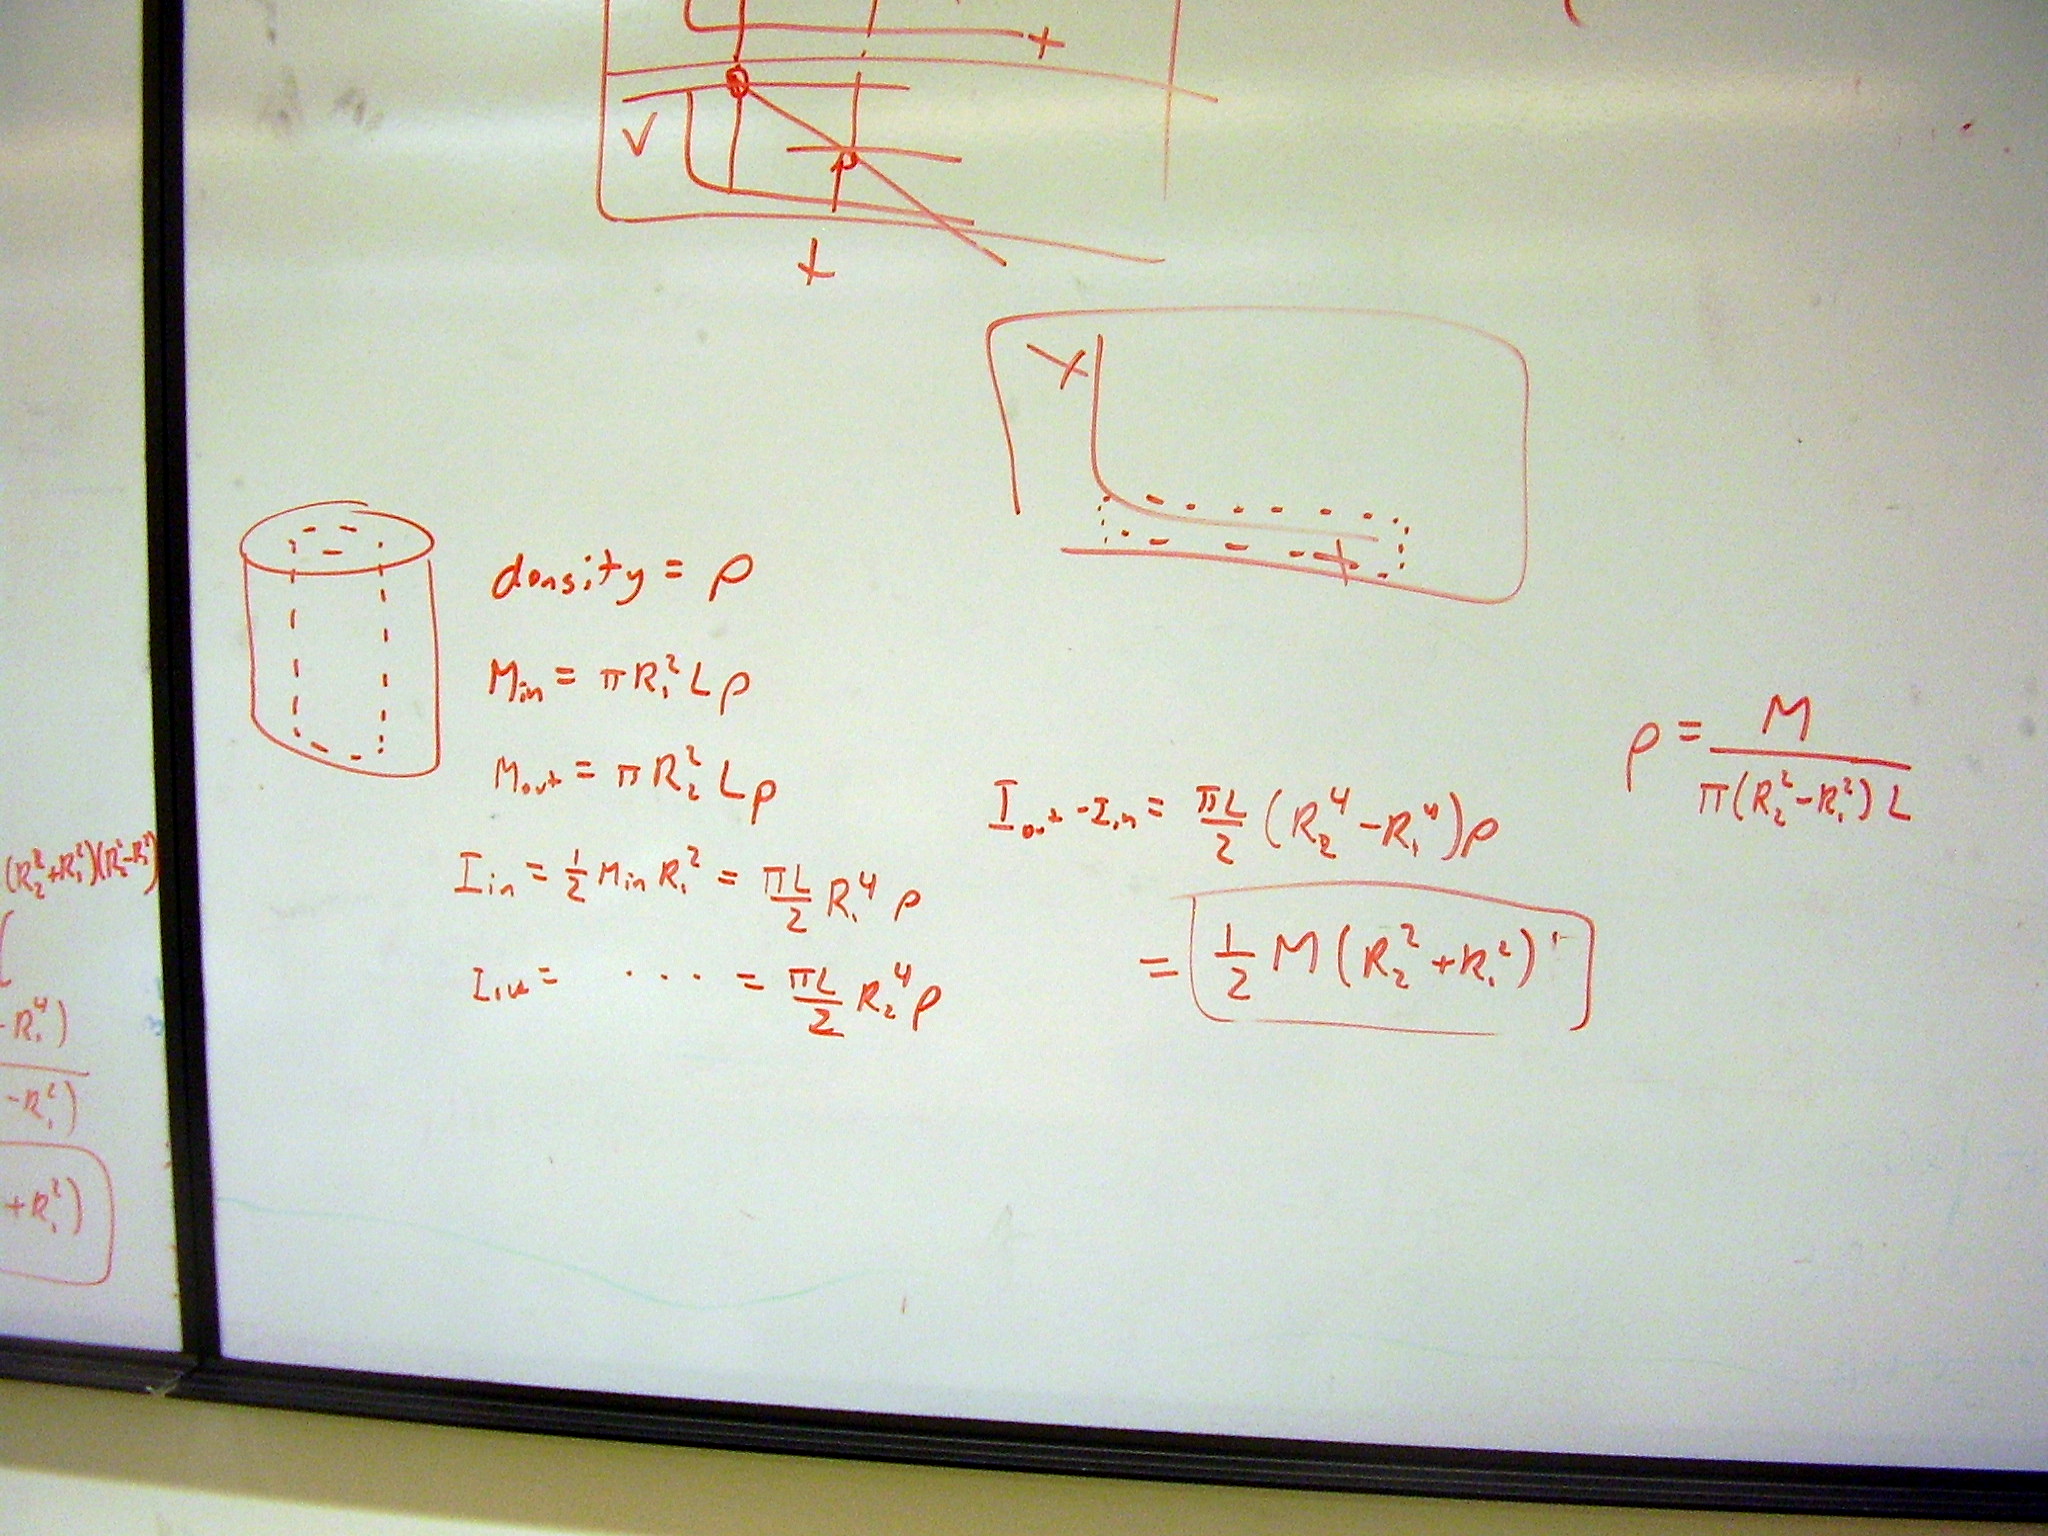 t
V
t
X
t
density = ρ
M_in = πR₁²Lρ
M_out = πR₂²Lρ
I_in = ½ M_in R₁² = πL/2 R₁⁴ ρ
= πL/2 R₂⁴ρ
I_out - I_in = πL/2 (R₂⁴ - R₁⁴)ρ
= ½ M (R₂² + R₁²)
ρ = M / π(R₂² - R₁²) L
(R₂²+R₁²)(R₂²-R₁²)
-R₁⁴)
-R₁²)
+R₁²)